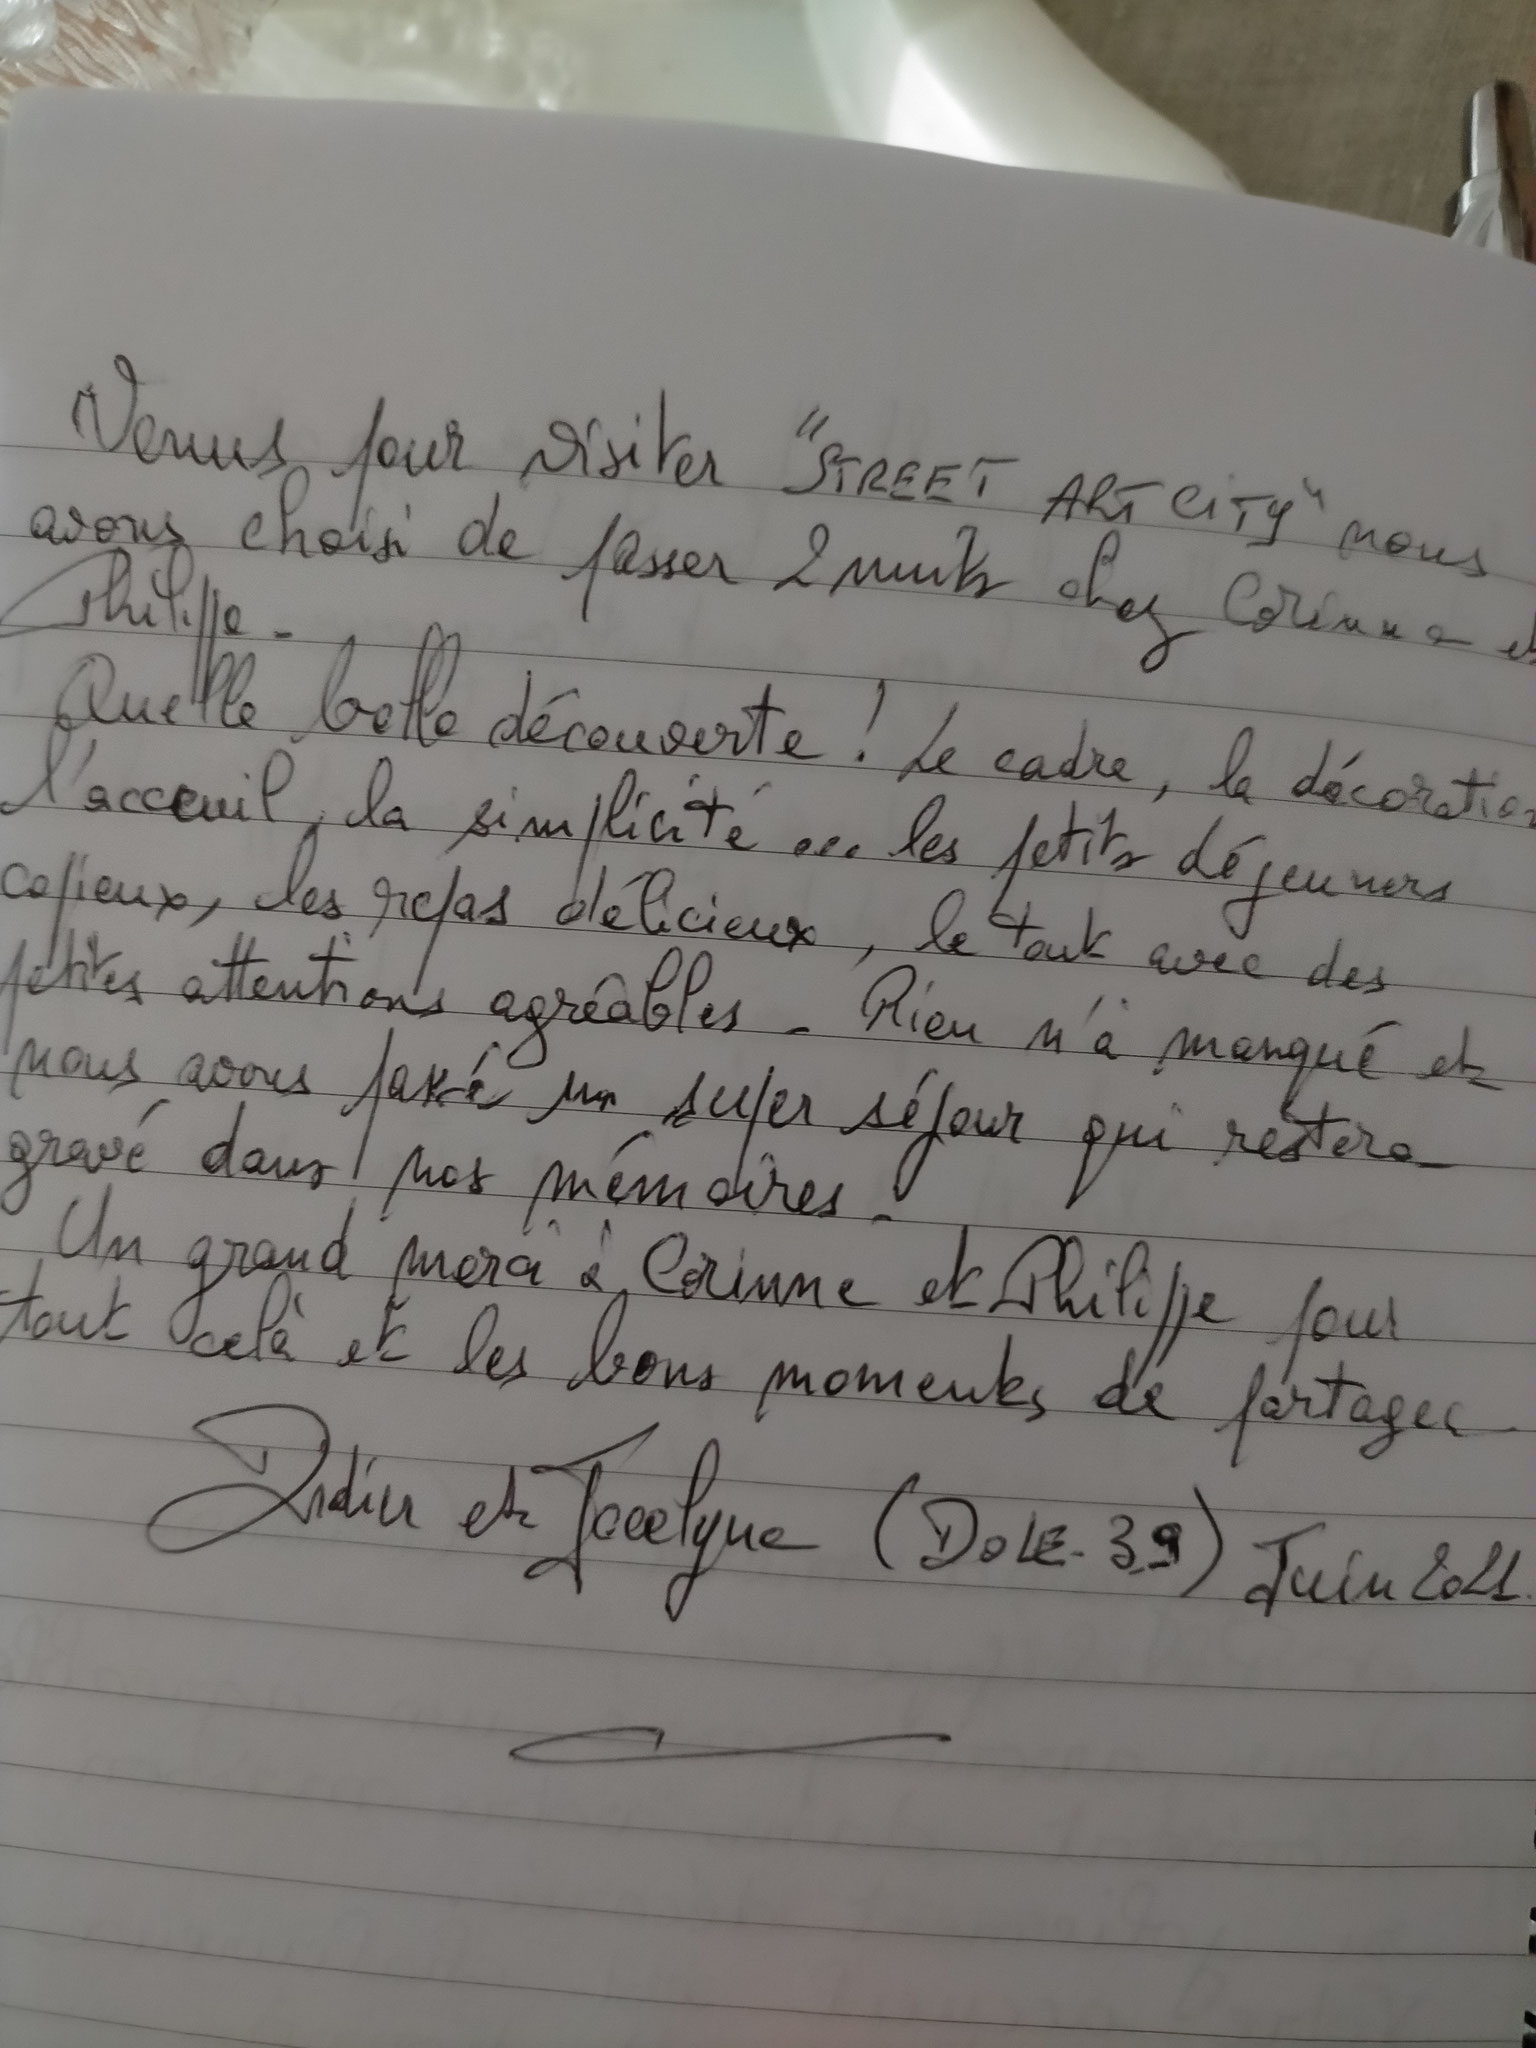 Venus pour visiter "STREET ART CITY" nous
avons choisi de passer 2 nuits chez Corinne et
Philippe -
Quelle belle découverte ! Le cadre, la décoration
l'acceuil, la simplicité ... les petits déjeuners
copieux, les repas délicieux, le tout avec des
petites attentions agréables - Rien n'à manqué et
nous avons passé un super séjour qui restera
gravé dans nos mémoires -
Un grand merci à Corinne et Philippe pour
tout celà et les bons moments de partage
Didier et Jocelyne (DOLE - 39) Juin 2021.